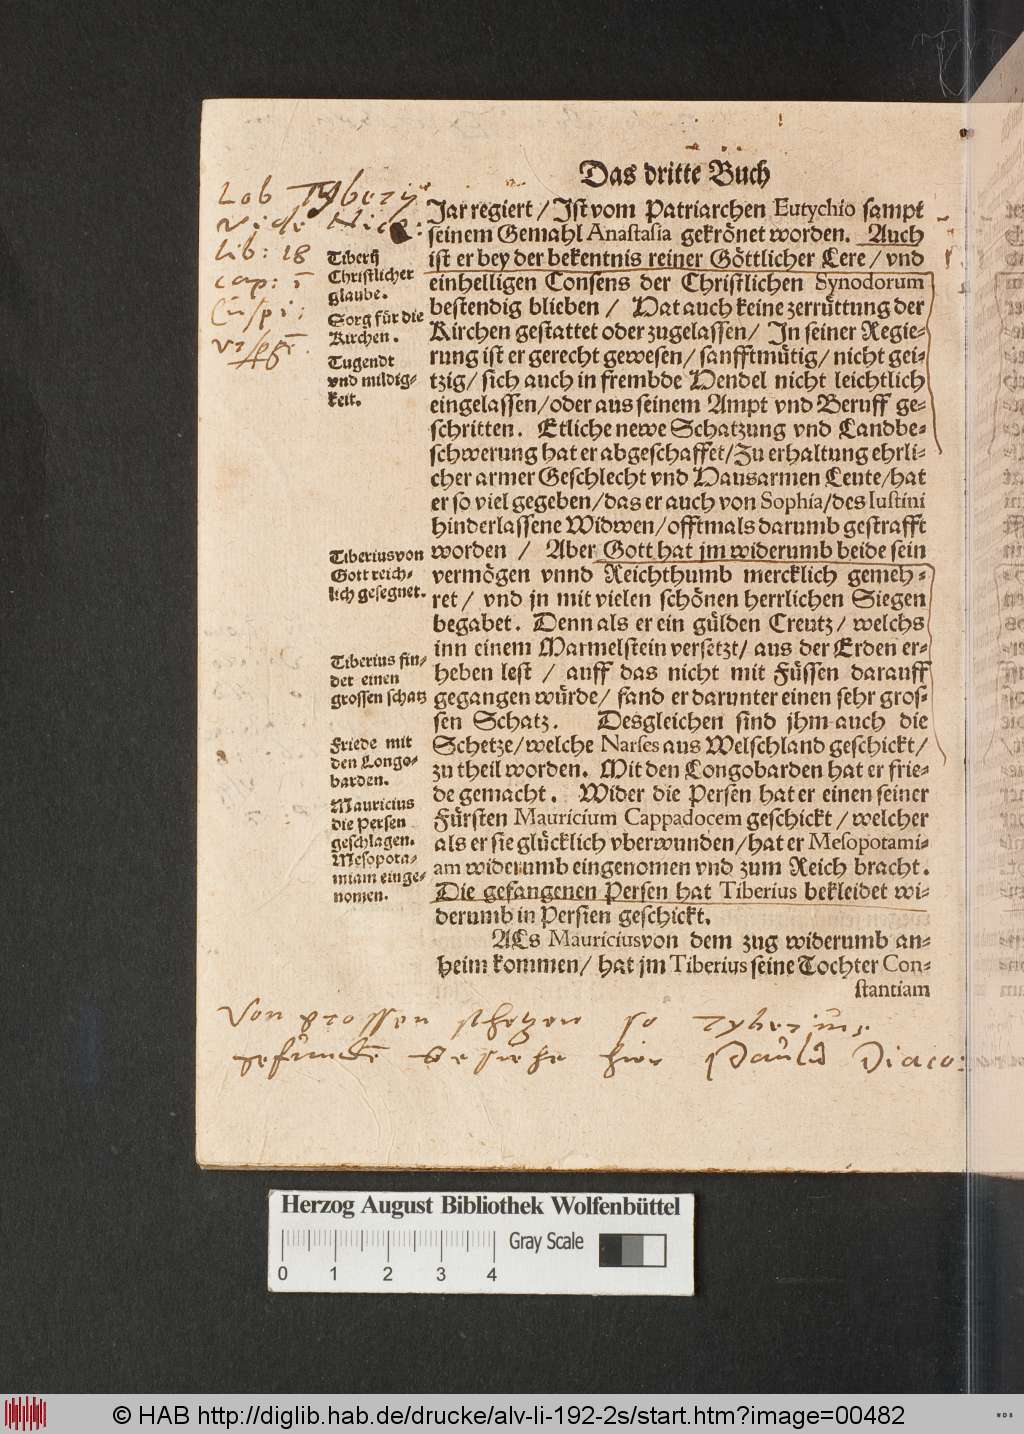 Das dritte Buch
Lob Tyberij
vide Nice:
lib: 18
cap: 1
Cuspi:
Jar regiert / Ist vom Patriarchen Eutychio sampt
seinem Gemahl Anastasia gekrönet worden. Auch
ist er bey der bekentnis reiner Göttlicher Lere / vnd
einhelligen Consens der Christlichen Synodorum
bestendig blieben / Hat auch keine zerrüttung der
Kirchen gestattet oder zugelassen / In seiner Regie-
rung ist er gerecht gewesen / sanfftmütig / nicht gei-
tzig / sich auch in frembde Hendel nicht leichtlich
eingelassen / oder aus seinem Ampt vnd Beruff ge-
schritten. Etliche newe Schatzung vnd Landbe-
schwerung hat er abgeschaffet / Zu erhaltung ehrli-
cher armer Geschlecht vnd Hausarmen Leute / hat
er so viel gegeben / das er auch von Sophia / des Iustini
hinderlassene Widwen / offtmals darumb gestrafft
worden / Aber Gott hat jm widerumb beide sein
vermögen vnnd Reichthumb mercklich gemeh-
ret / vnd jn mit vielen schönen herrlichen Siegen
begabet. Denn als er ein gülden Creutz / welchs
inn einem Marmelstein versetzt / aus der Erden er-
heben lest / auff das nicht mit Füssen darauff
gegangen würde / fand er darunter einen sehr gros-
sen Schatz. Desgleichen sind jhm auch die
Schetze / welche Narses aus Welschland geschickt /
zu theil worden. Mit den Longobarden hat er frie-
de gemacht. Wider die Persen hat er einen seiner
Fürsten Mauricium Cappadocem geschickt / welcher
als er sie glücklich vberwunden / hat er Mesopotami-
am widerumb eingenomen vnd zum Reich bracht.
Die gefangenen Persen hat Tiberius bekleidet wi-
derumb in Persien geschickt.
ALs Mauricius von dem zug widerumb an-
heim kommen / hat jm Tiberius seine Tochter Con-
stantiam
Tiberij
Christlicher
glaube.
Sorg für die
Kirchen.
Tugendt
vnd mildig-
keit.
Tiberius von
Gott reich-
lich gesegnet.
Tiberius fin-
det einen
grossen schatz
Friede mit
den Longo-
barden.
Mauricius
die Persen
geschlagen.
Mesopota-
miam einge-
nomen.
Von grossen schetzen so Tyberius
gefunden besiehe hier Paulum Diaco:
Herzog August Bibliothek Wolfenbüttel
Gray Scale
0 1 2 3 4
© HAB http://diglib.hab.de/drucke/alv-li-192-2s/start.htm?image=00482